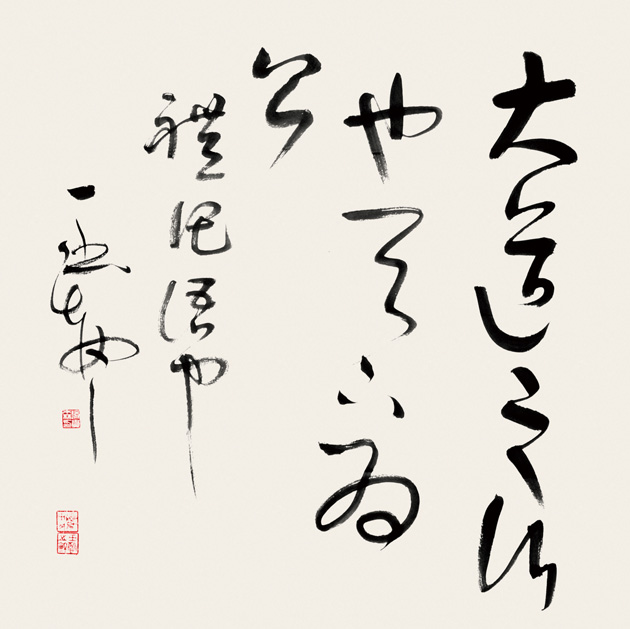 大道之行
也天下為
公
禮記語也